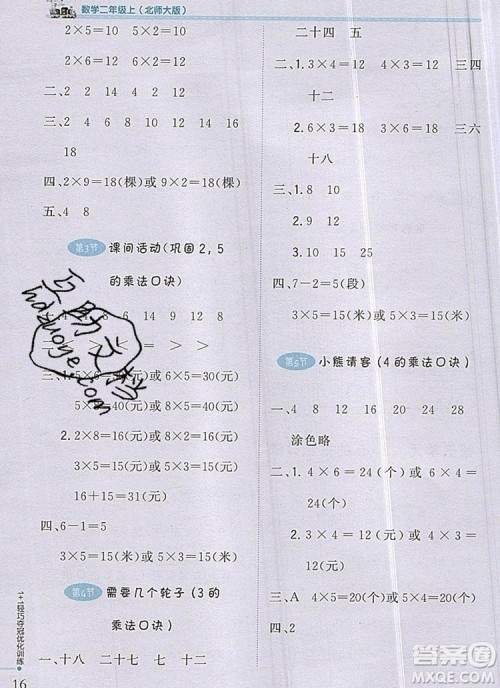 数学二年级上（北师大版）
2×5=10　5×2=10
2×6=12　6×2=12
二、2　4　12　12　18
三、2　2　4　4　14　14　16
18
四、2×9=18(棵)或 9×2=18(棵)
五、4　8
第3节　课间活动(巩固2，5
的乘法口诀)
4　6　8　14　9　12
＞　＞　＞
三、1.5×6=30(元)或 6×5=30(元)
5×8=40(元)或 8×5=40(元)
2.2×8=16(元)或 8×2=16(元)
3×5=15(元)或 5×3=15(元)
16+15=31(元)
四、6-1=5
3×5=15(米)或 5×3=15(米)
第4节　需要几个轮子(3的
乘法口诀)
一、十八　二十七　七　十二
二十四　五
二、1.3×4=12　4×3=12　三四
十二
2.3×6=18　6×3=18　三六
十八
三、1.8　10
2.9　12
3.10　15　21
四、7-2=5(段)
3×5=15(米)或 5×3=15(米)
第5节　小熊请客(4的乘法口诀)
一、4　8　12　16　20　24　28
涂色略
二、1.4×6=24(个)或 6×4=
24(个)
2.3×4=12(个)或 4×3=
12(个)
三、A
四、2
1+1轻巧夺冠优化训练
16
答案圈
MXQE.COM